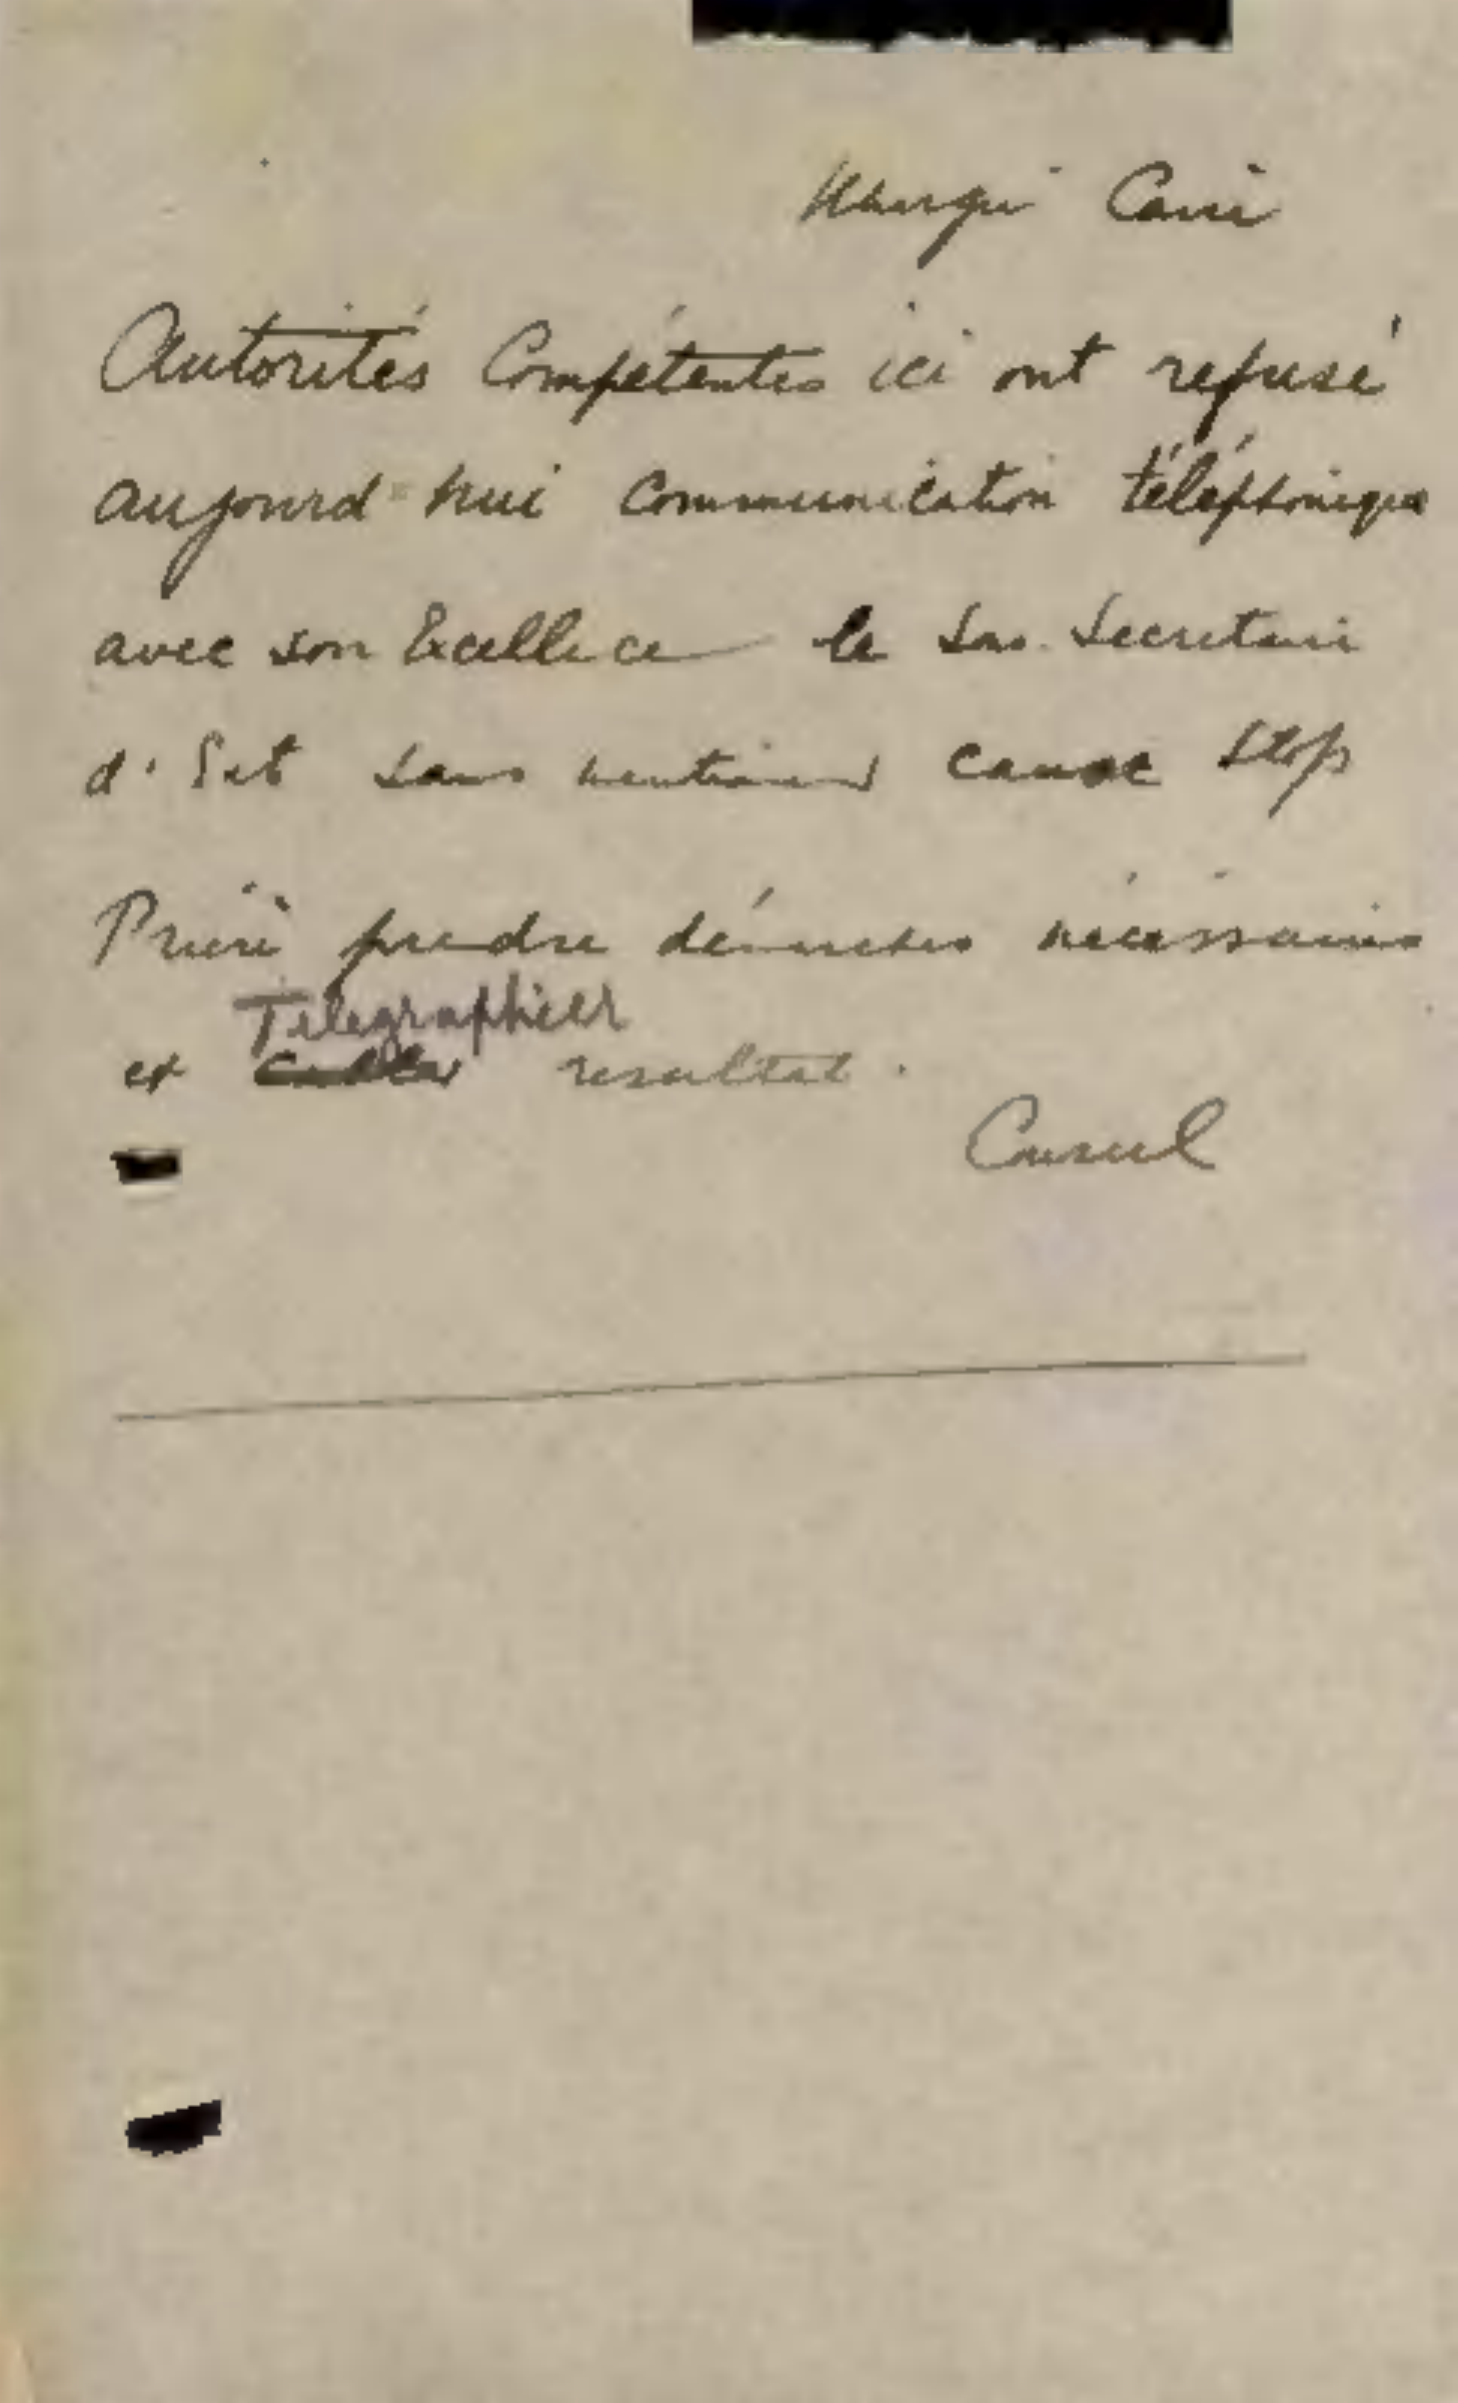 Caire
Autorités Compétentes ici ont refusé
aujourd'hui communication téléphonique
avec son Excellence le Sous. Secretaire
d'Etat sans mentionner cause Stop
Prière prendre démarches nécéssaires
Telegraphier
et Cabler resultat.
Consul